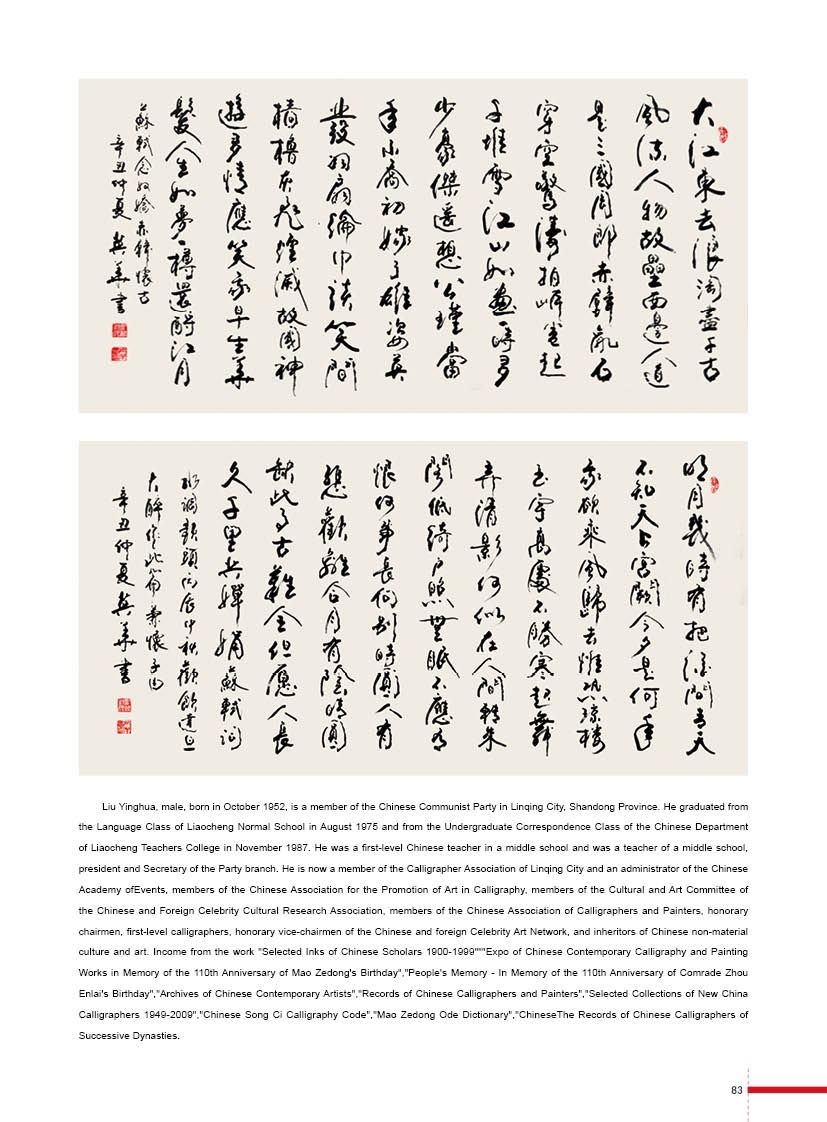 大江東去浪淘盡千古
風流人物故壘西邊人道
是三國周郎赤壁亂石
穿空驚濤拍岸卷起
千堆雪江山如畫一時多
少豪傑遙想公瑾當
年小喬初嫁了雄姿英
發羽扇綸巾談笑間
檣櫓灰飛煙滅故國神
遊多情應笑我早生華
髮人生如夢一樽還酹江月
蘇軾念奴嬌赤壁懷古
辛丑仲夏英華書
明月幾時有把酒問青天
不知天上宮闕今夕是何年
我欲乘風歸去惟恐瓊樓
玉宇高處不勝寒起舞
弄清影何似在人間轉朱
閣低綺戶照無眠不應有
恨何事長向別時圓人有
悲歡離合月有陰晴圓
缺此事古難全但愿人長
久千里共嬋娟蘇軾詞
水調歌頭丙辰中秋歡飲達旦
大醉作此篇兼懷子由
辛丑仲夏英華書
Liu Yinghua, male, born in October 1952, is a member of the Chinese Communist Party in Linqing City, Shandong Province. He graduated from
the Language Class of Liaocheng Normal School in August 1975 and from the Undergraduate Correspondence Class of the Chinese Department
of Liaocheng Teachers College in November 1987. He was a first-level Chinese teacher in a middle school and was a teacher of a middle school,
president and Secretary of the Party branch. He is now a member of the Calligrapher Association of Linqing City and an administrator of the Chinese
Academy ofEvents, members of the Chinese Association for the Promotion of Art in Calligraphy, members of the Cultural and Art Committee of
the Chinese and Foreign Celebrity Cultural Research Association, members of the Chinese Association of Calligraphers and Painters, honorary
chairmen, first-level calligraphers, honorary vice-chairmen of the Chinese and foreign Celebrity Art Network, and inheritors of Chinese non-material
culture and art. Income from the work "Selected Inks of Chinese Scholars 1900-1999"""Expo of Chinese Contemporary Calligraphy and Painting
Works in Memory of the 110th Anniversary of Mao Zedong's Birthday","People's Memory - In Memory of the 110th Anniversary of Comrade Zhou
Enlai's Birthday","Archives of Chinese Contemporary Artists","Records of Chinese Calligraphers and Painters","Selected Collections of New China
Calligraphers 1949-2009","Chinese Song Ci Calligraphy Code","Mao Zedong Ode Dictionary","ChineseThe Records of Chinese Calligraphers of
Successive Dynasties.
83